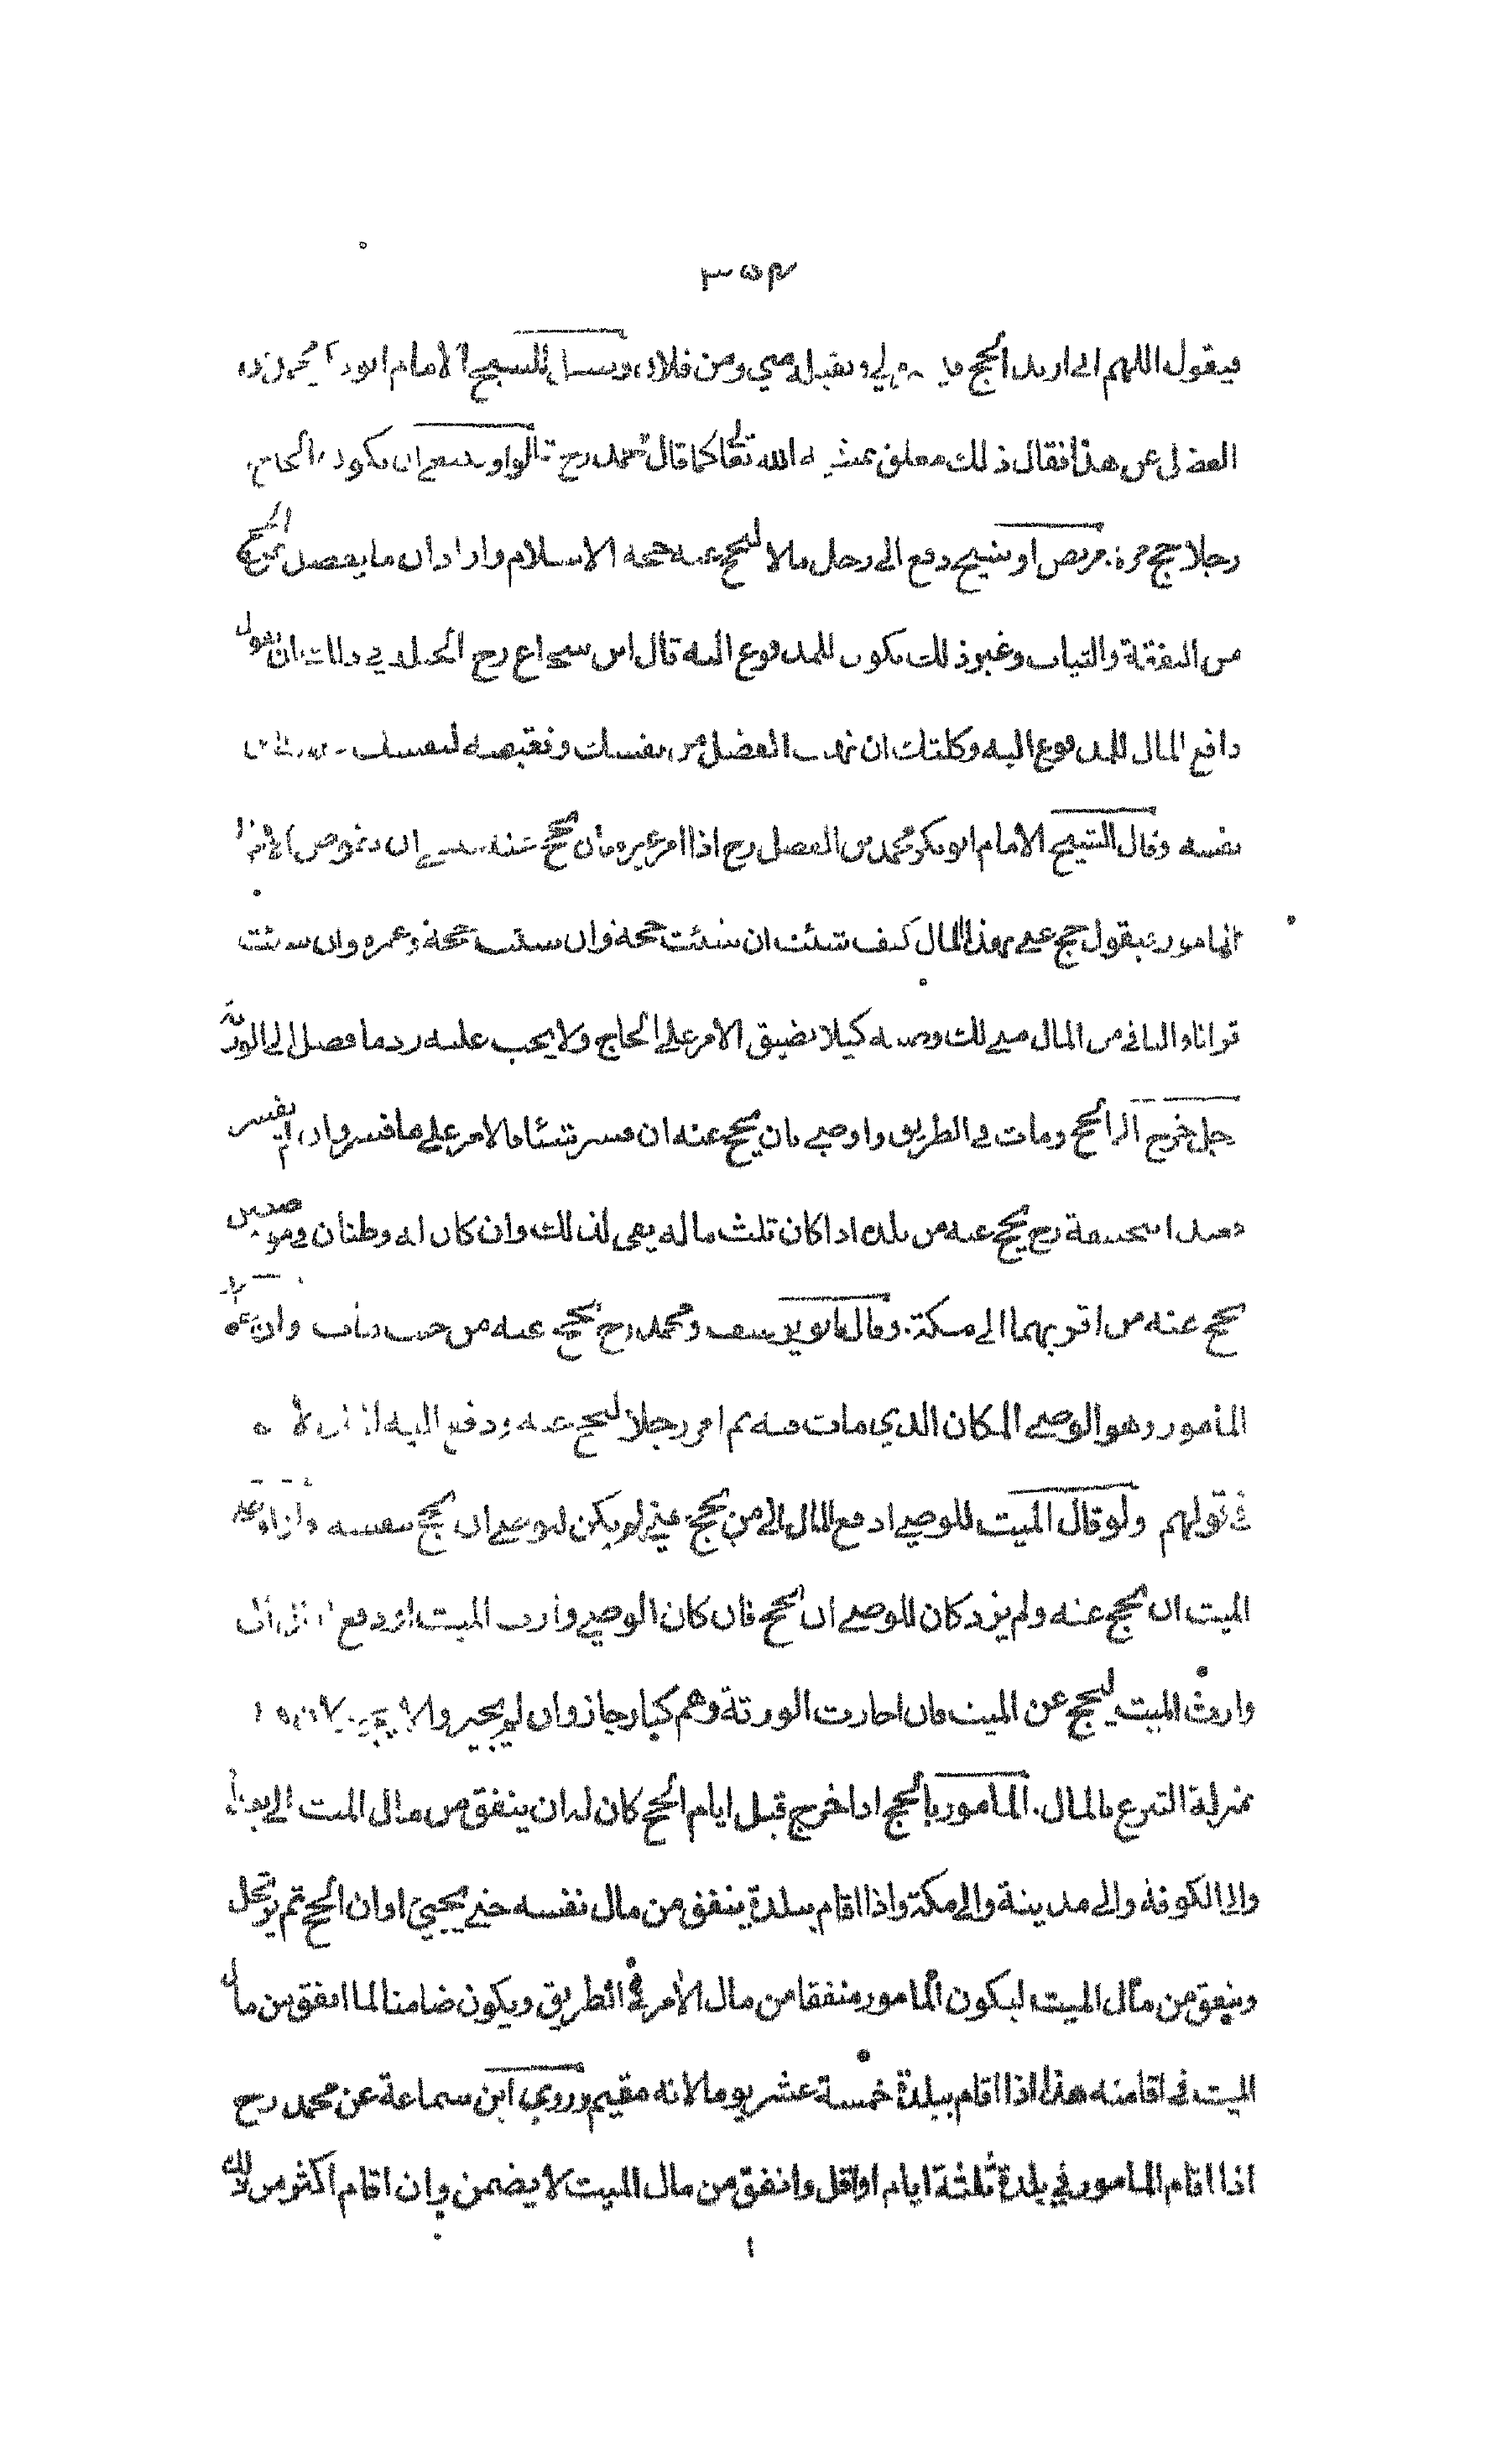 ٣٥٤
فيقول اللهم اني اريد الحج لي وتقبله مني ومن فلان الشيخ الامام ابو
الفضل عن هذا فقال ذلك معلق بمشية الله تعالى كما قال محمد رح قالوا وينبغي ان يكون الحاج
رجلا حج مرة. مريض او شيخ دفع الى رجل مالا ليحج عنه حجة الاسلام واراد ان ما يفضل
من النفقة والثياب وغير ذلك يكون للمدفوع اليه قال ابن شجاع رح الحيلة في ذلك ان يقول
دافع المال للمدفوع اليه وكلتك ان تهب الفضل من نفسك وتقبضه لنفسك
نفسه وقال الشيخ الامام ابو بكر محمد بن الفضل رح اذا امر غيره بان يحج عنه ينبغي ان يفوض الامر
المامور فيقول حج عني بهذا المال كيف شئت ان شئت حجة وان شئت حجة وعمرة وان شئت
قرانا والباقي من المال مني لك وصية كيلا يضيق الامر على الحاج ولا يجب عليه رد ما فضل الى الورثة
رجل خرج الى الحج ومات في الطريق واوصى بان يحج عنه ان فسر شيئا فالامر على ما فسر وان لم يفسر
يحج عنه من بلده اذا كان ثلث ماله يفي لذلك وان كان له وطنان في موضعين
يحج عنه من اقربهما الى مكة. وقال ابو يوسف ومحمد رح يحج عنه من حيث مات وان
المامور وهو الوصي المكان الذي مات فيه ثم امر رجلا ليحج عنه ودفع اليه
في قولهم ولو قال الميت للوصي ادفع المال الى من يحج عني لم يكن للوصي ان يحج بنفسه
الميت ان يحج عنه ولم يزد كان للوصي ان يحج فان كان الوصي وارث الميت او دفع المال الى
وارث الميت ليحج عن الميت فان اجازت الورثة وهم كبار جاز وان لم يجيزوا لا يجوز
بمنزلة التبرع بالمال. المامور بالحج اذا خرج قبل ايام الحج كان له ان ينفق من مال الميت الى بغداد
والى الكوفة والى مدينة والى مكة واذا اقام ببلدة ينفق من مال نفسه حتى يجيئ اوان الحج ثم يرتحل
وينفق من مال الميت ليكون المامور منفقا من مال الآمر في الطريق ويكون ضامنا لما انفق من مال
الميت في اقامته هذا اذا اقام ببلدة خمسة عشر يوما لانه مقيم وروي ابن سماعة عن محمد رح
اذا اقام المامور في بلدة ثلثة ايام او اقل وانفق من مال الميت لا يضمن وان اقام اكثر من ذلك